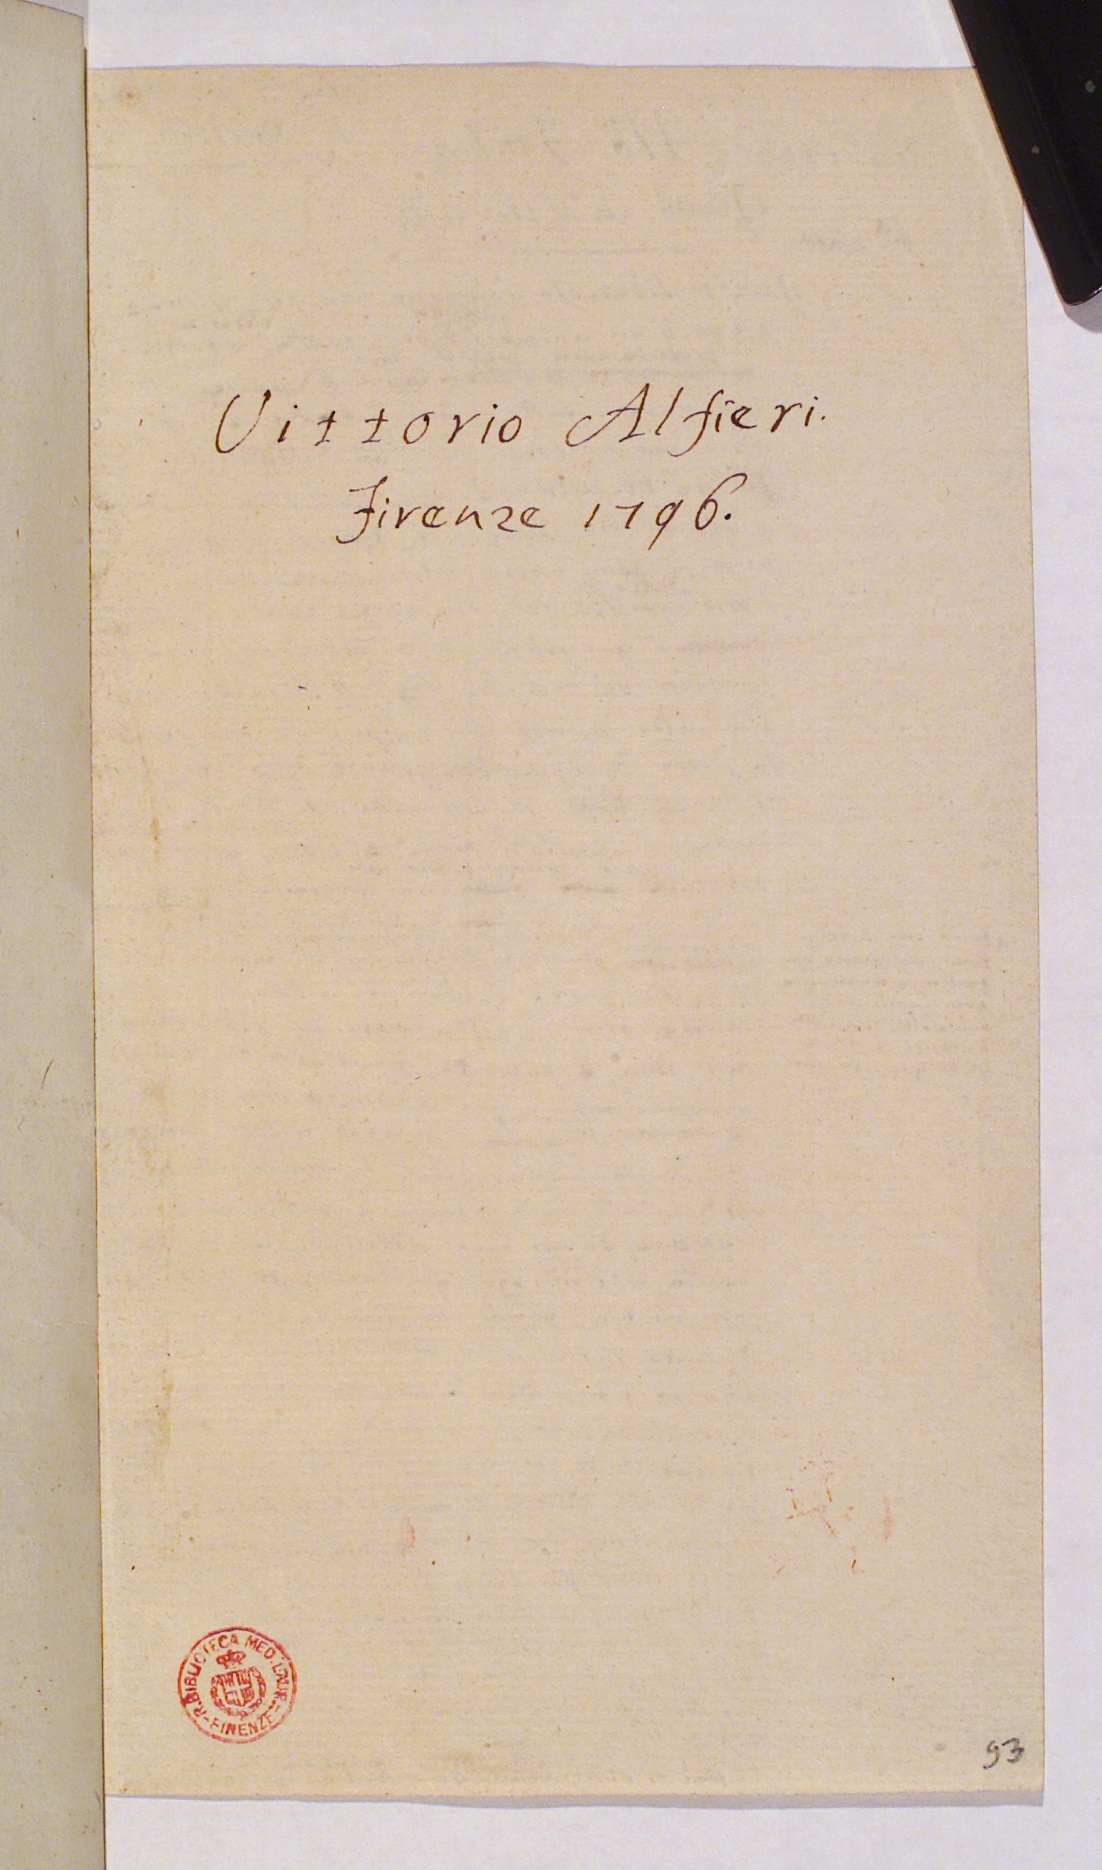 Vittorio Alfieri.
Firenze 1796.
R. BIBLIOTECA MED. LAUR. - FIRENZE -
93